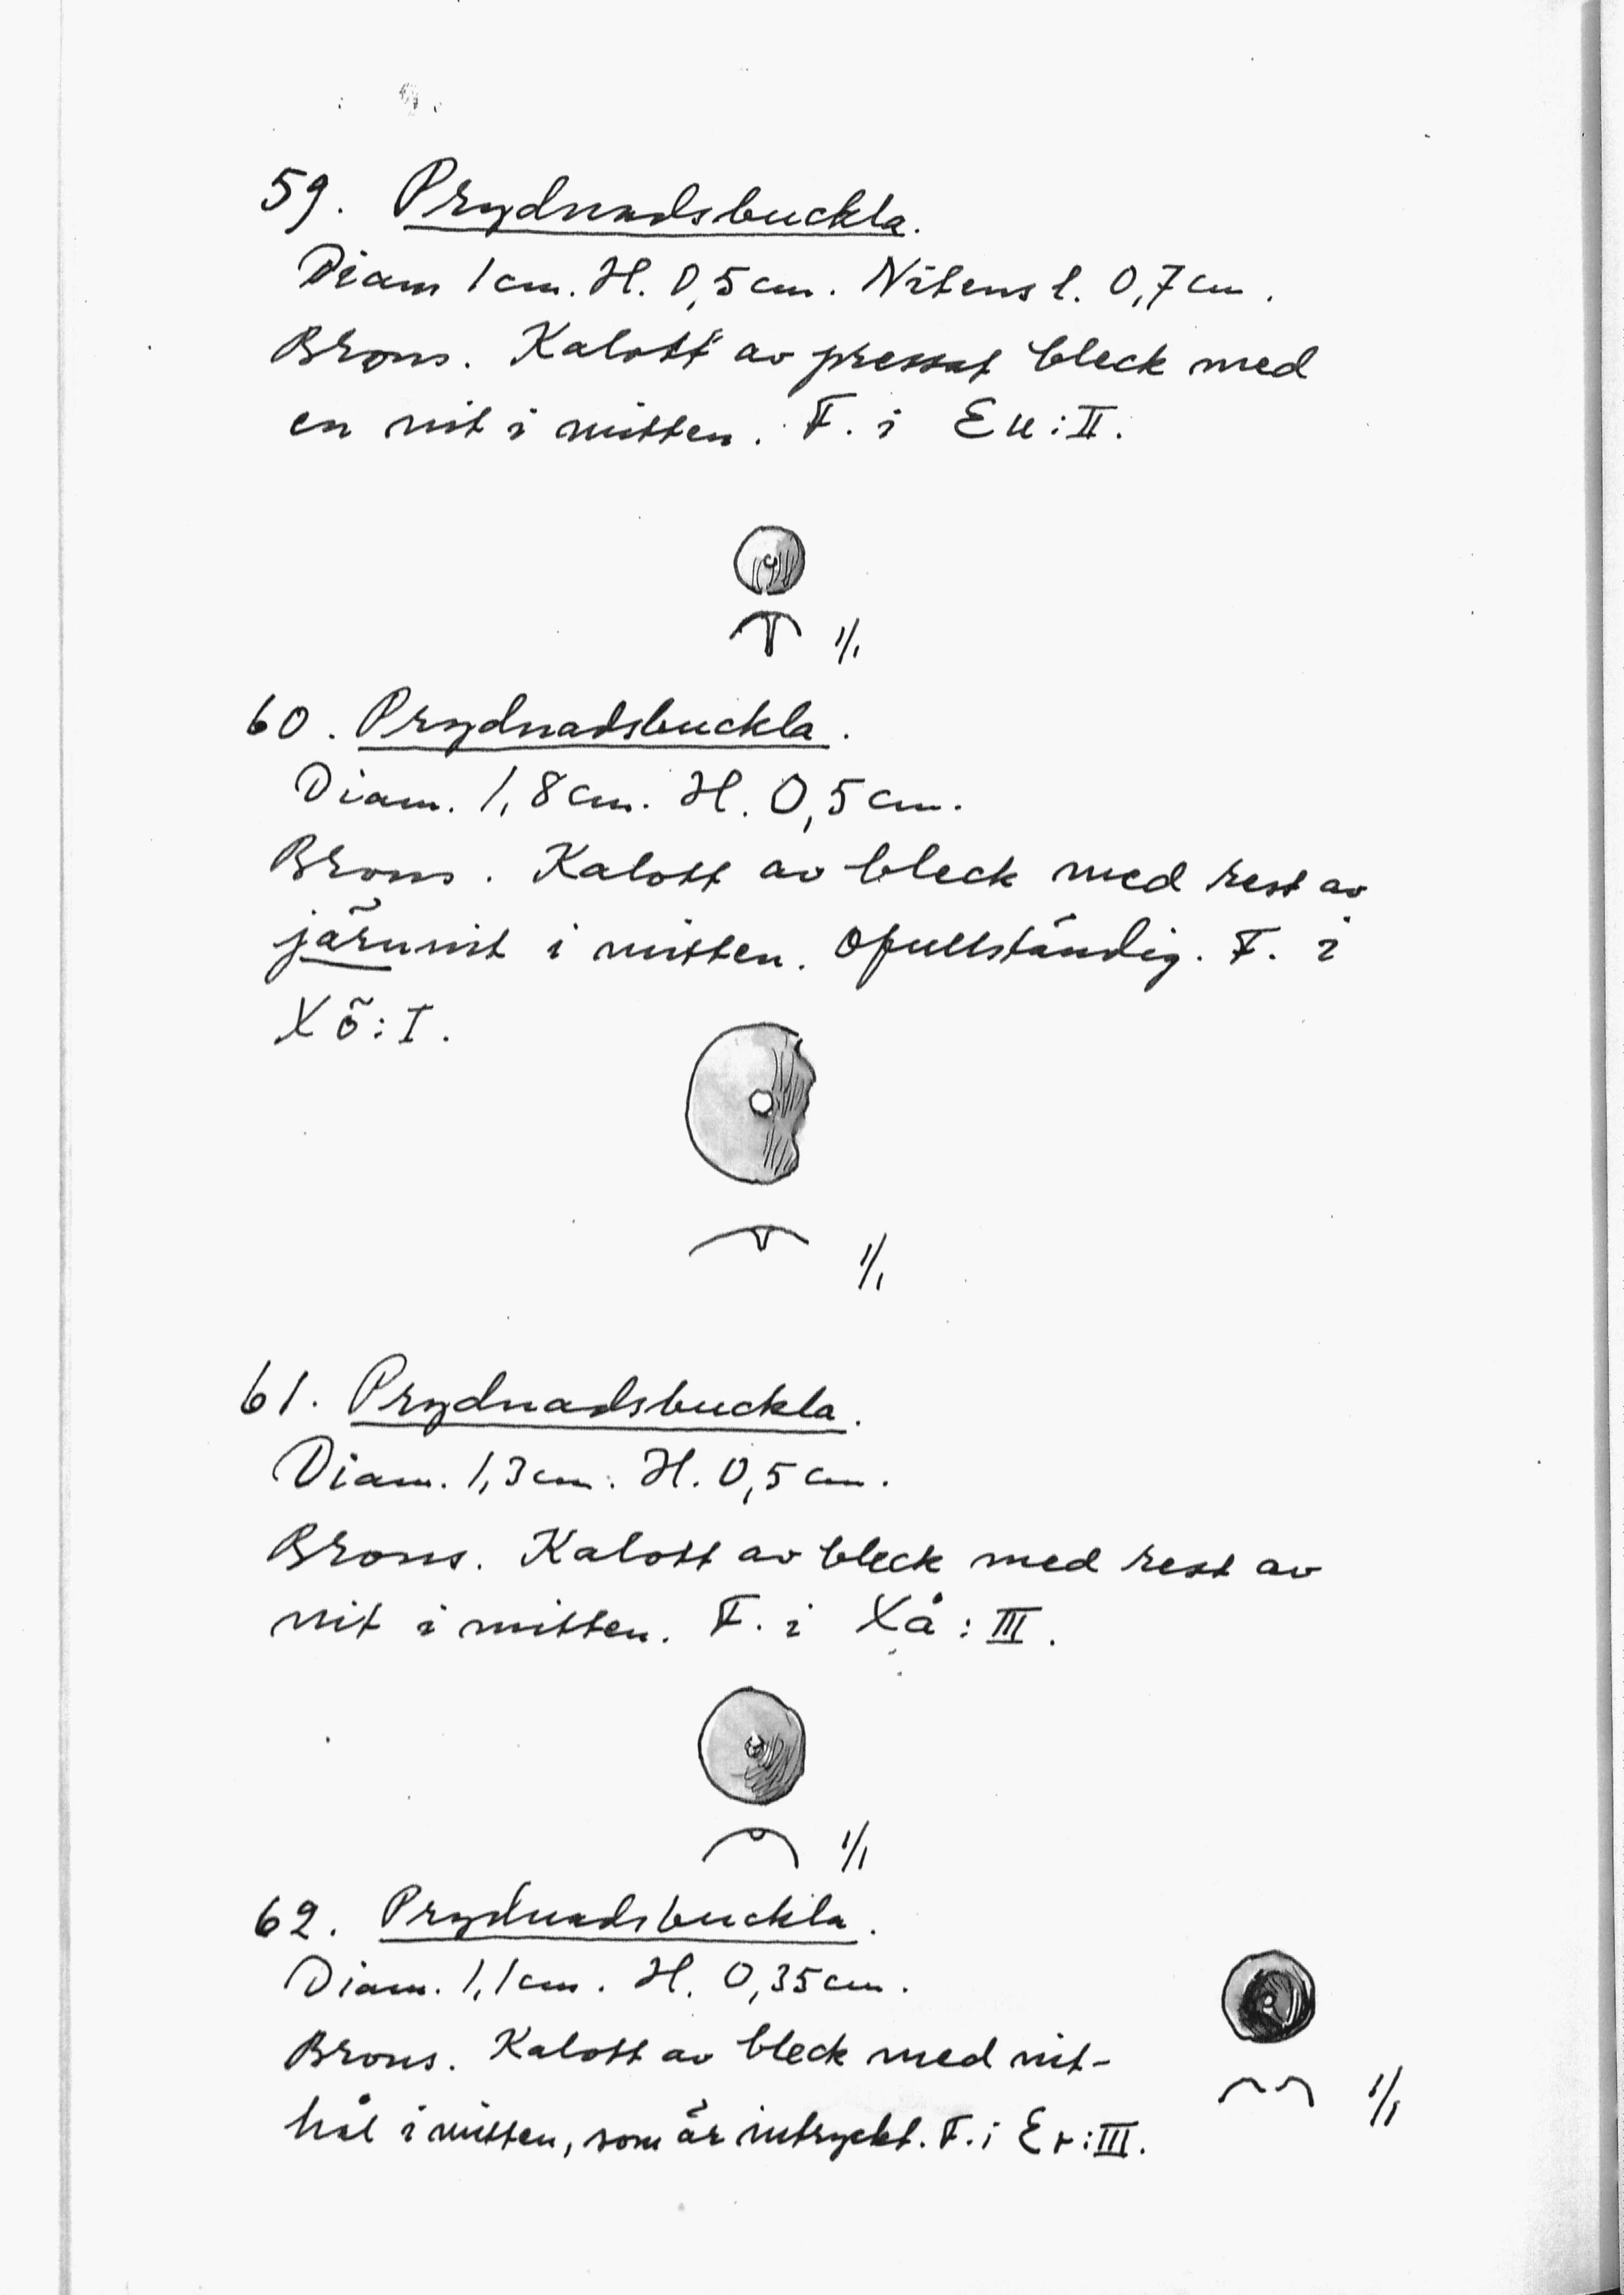 59. Prydnadsbuckla.
Diam 1 cm. H. 0,5 cm. Nitens l. 0,7 cm.
Brons. Kalott av pressat bleck med
en nit i mitten. F. i Eu:II.
1/1
60. Prydnadsbuckla.
Diam. 1,8 cm. H. 0,5 cm.
Brons. Kalott av bleck med rest av
järnnit i mitten. Ofullständig. F. i
Xö:I.
1/1
61. Prydnadsbuckla.
Diam. 1,3 cm. H. 0,5 cm.
Brons. Kalott av bleck med rest av
nit i mitten. F. i Xå:III.
1/1
62. Prydnadsbuckla.
Diam. 1,1 cm. H. 0,35 cm.
Brons. Kalott av bleck med nit-
hål i mitten, som är intryckt. F. i Er:III.
1/1